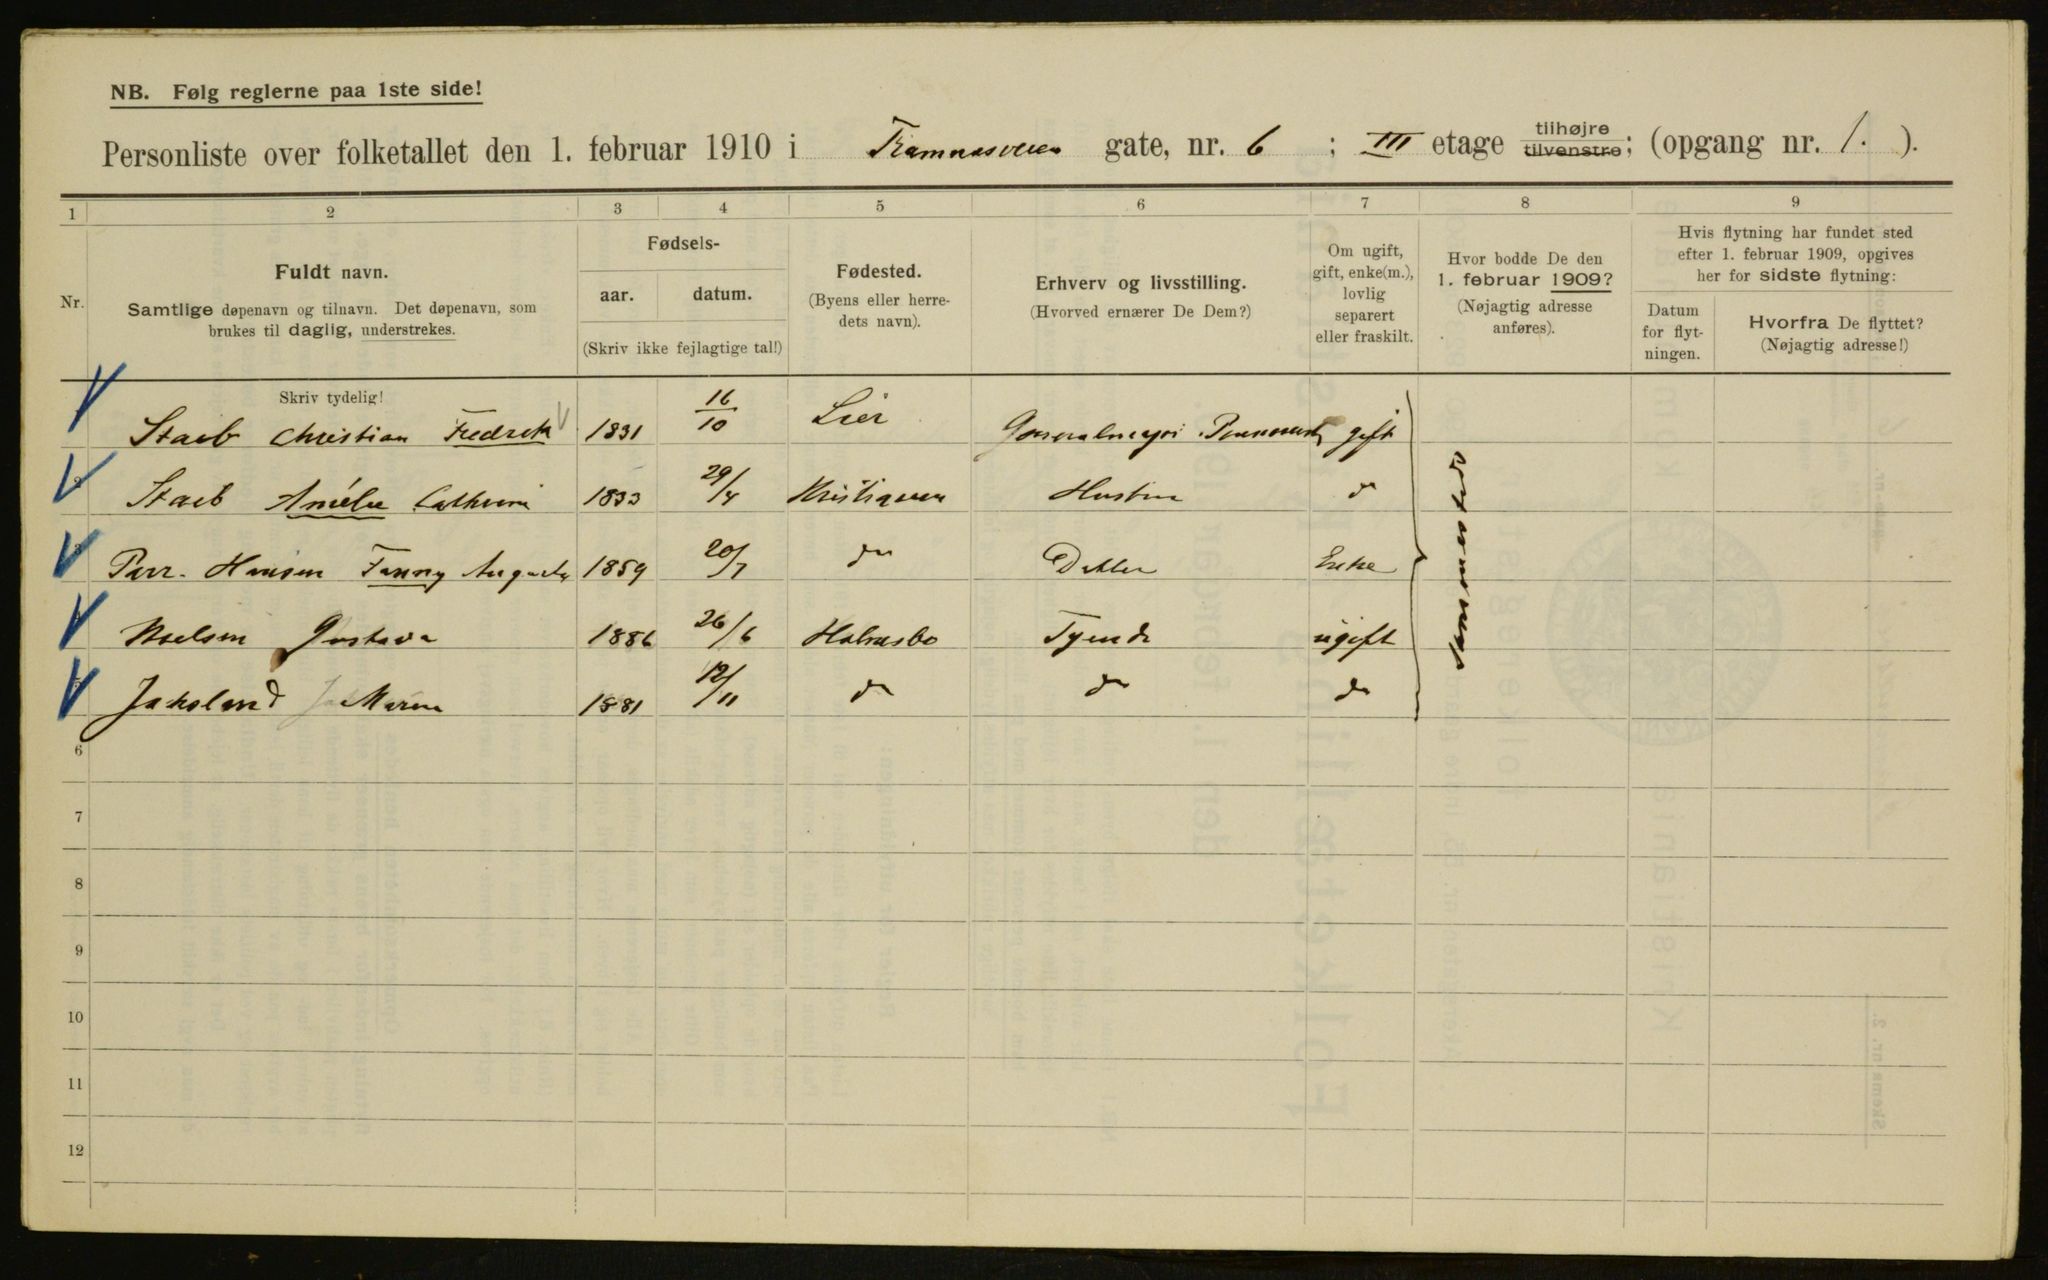 NB. Følg reglerne paa 1ste side!
Personliste over folketallet den 1. februar 1910 i Framnæsveien gate, nr. 6 ; III etage tilhøjre tilvenstre; (opgang nr. 1. ).
1 2 3 4 5 6 7 8 9
Nr.
Fuldt navn.
Samtlige døpenavn og tilnavn. Det døpenavn, som
brukes til daglig, understrekes.
Fødsels-
aar. datum.
(Skriv ikke fejlagtige tal!)
Fødested.
(Byens eller herre-
dets navn).
Erhverv og livsstilling.
(Hvorved ernærer De Dem?)
Om ugift,
gift, enke(m.),
lovlig
separert
eller fraskilt.
Hvor bodde De den
1. februar 1909?
(Nøjagtig adresse
anføres).
Hvis flytning har fundet sted
efter 1. februar 1909, opgives
her for sidste flytning:
Datum
for flyt-
ningen.
Hvorfra De flyttet?
(Nøjagtig adresse!)
Skriv tydelig!
Staib Christian Fredrik 1831 16/10 Lier Generalmajor gift
Staib Amélie 1833 29/4 Kristiania Hustru do
Hansen Fanny Augusta 1859 20/7 do Datter Enke
Gustava 1886 26/6 Tyende ugift
Jaksland Maren 1881 12/11 do do do
sammested
6
7
8
9
10
11
12